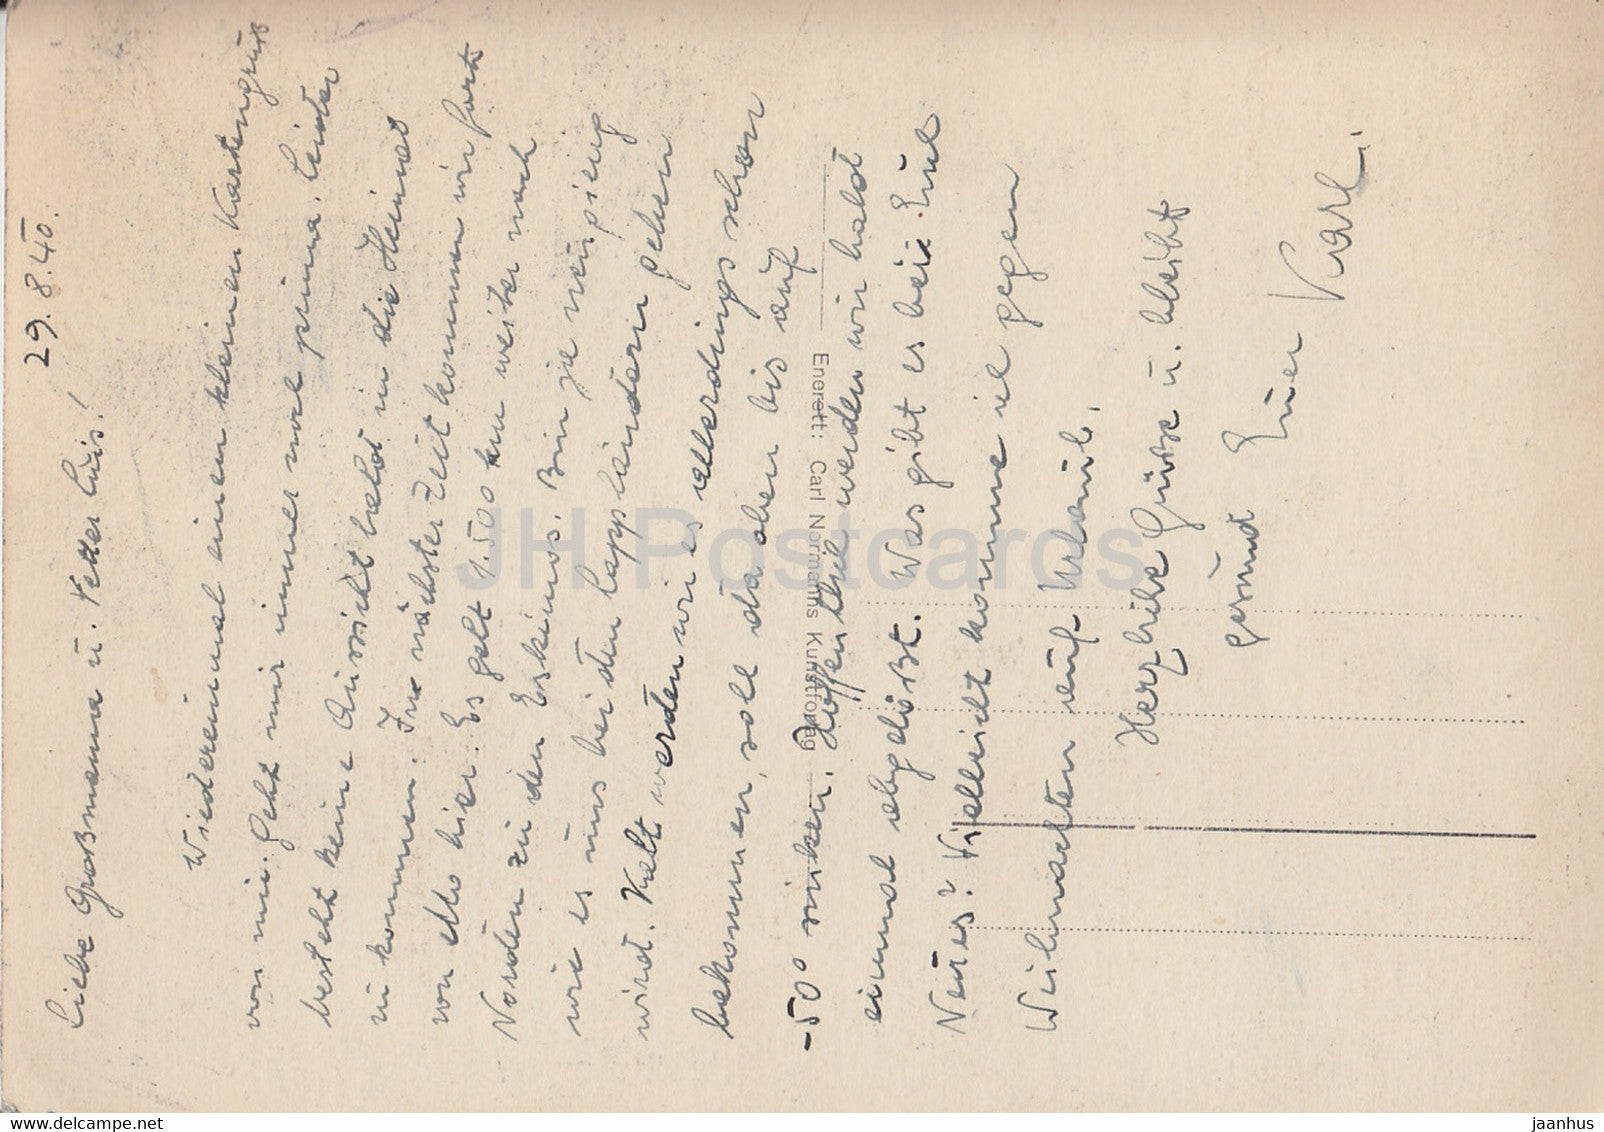 29. 8. 40.
Liebe Großmama u. Vetter Luis!
Wiedereinmal einen kleinen Kartengruß
von mir. Geht mir immer noch prima. Leider
besteht keine Aussicht bald in die Heimat
zu kommen. In nächster Zeit kommen wir fort
von Mo hier. Es geht 1.500 km weiter nach
Norden zu den Eskimos. Bin ja neugierig
wie es uns bei den Lappländern gehen
wird. Kalt werden wir es allerdings schon
bekommen, soll da oben bis auf
-50° sinken. Hoffentlich werden wir bald
einmal abgelöst. Was gibt es bei Euch
Neues? Vielleicht komme ich gegen
Weihnachten auf Urlaub.
Herzliche Grüße u. bleibt
gesund Euer Karl.
Enerett: Carl Normanns Kunstforlag
JH Postcards
www.delcampe.net
jaanhus